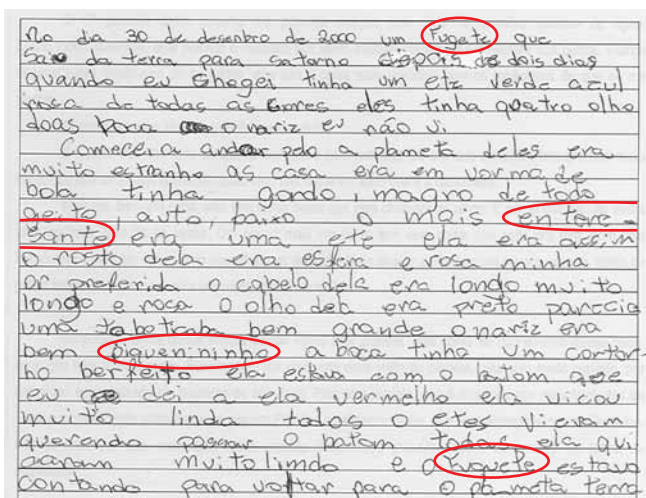 No dia 30 de desenbro de 2000 um Fugete que
Saio da terra para satorno depois de dois dias
quando eu Shogei tinha um etz verde azul
rosa de todas as Cores eles tinha quatro olho
doas boca o nariz eu não vi.
Comecei a andar pelo a planeta deles era
muito estranho as casa era em vorma de
bola tinha gordo, magro de todo
geito, auto, baixo o mais entere-
sante era uma ete ela era assim
o rosto dela era esfera e rosa minha
or preferida o cabelo dela era londo muito
longo e rosa O olho dela era preto parecia
uma taboticaba bem grande o nariz era
bem piquenininho a boca tinha um contor-
ho berfeito ela estava com o batom que
eu dei a ela vermelho ela vicou
muito linda todos o etes vieram
querendo passar o batom todas ela qui
acaram muito limda e o Fuguete estava
contando para voltar para o planeta terra